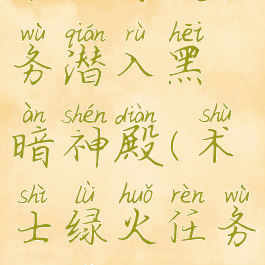 wù qián rù hēi
务潜入黑
àn shén diàn shù
暗神殿(术
shì lǜ huǒ rèn wù
士绿火任务